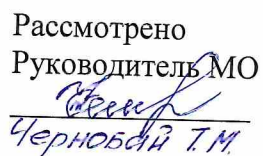 Рассмотрено
Руководитель МО
Чернобай Т.М.